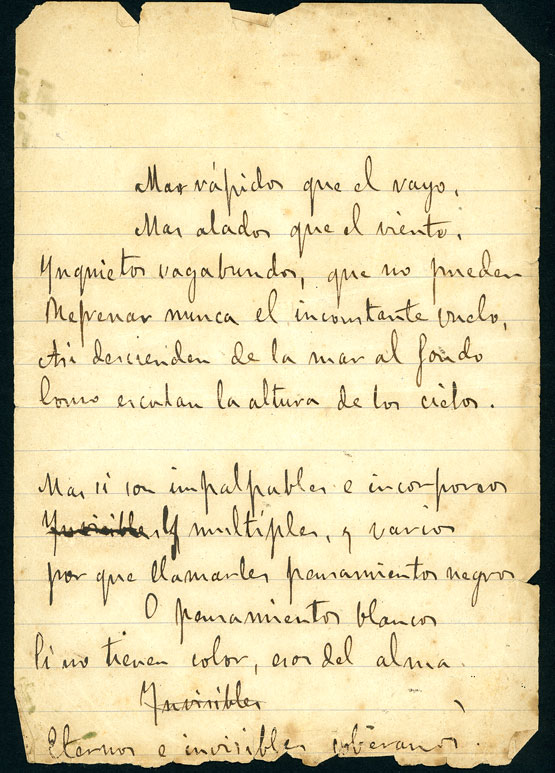 Mas rápidos que el rayo,
Mas alados que el viento,
Ynquietos vagabundos, que no pueden
Refrenar nunca el inconstante vuelo,
Asi descienden de la mar al fondo
Como escalan la altura de los cielos.
Mas si son impalpables e incorporeos
Ynvisibles Y multiples, y varios
por que llamarles pensamientos negros
O pensamientos blancos
Si no tienen color, esos del alma
Ynvisibles
Eternos e invisibles soberanos.